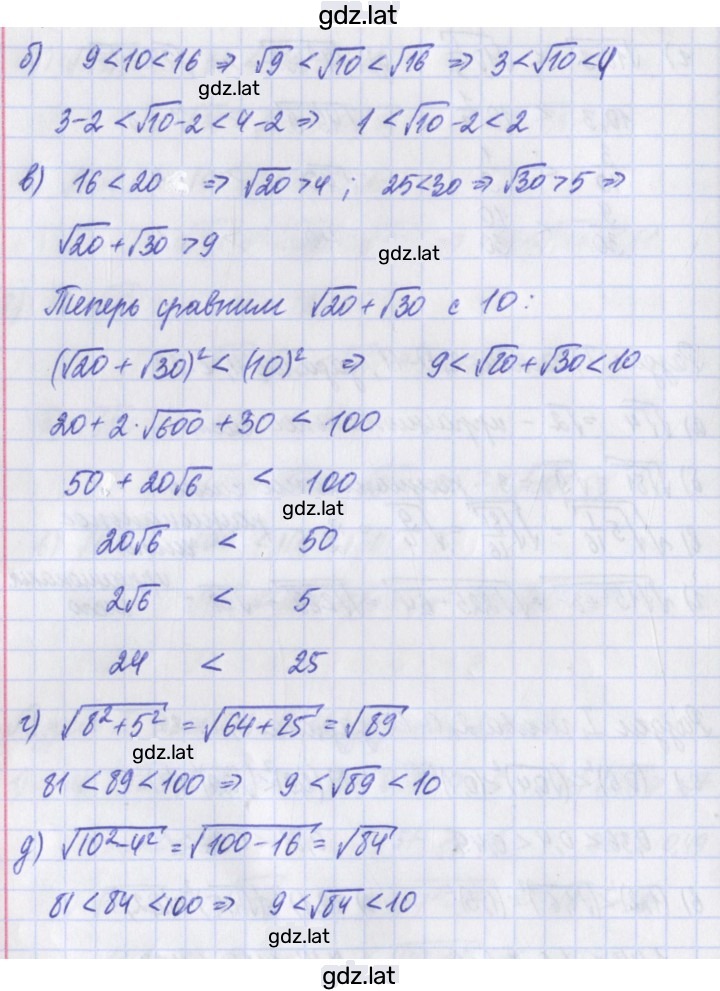 gdz.lat
б) 9 < 10 < 16 ⇒ √9 < √10 < √16 ⇒ 3 < √10 < 4
gdz.lat
3-2 < √10-2 < 4-2 ⇒ 1 < √10-2 < 2
в) 16 < 20 ⇒ √20 > 4 ; 25 < 30 ⇒ √30 > 5 ⇒
√20 + √30 > 9
gdz.lat
Теперь сравним √20 + √30 с 10:
(√20 + √30)² < (10)² ⇒ 9 < √20 + √30 < 10
20 + 2·√600 + 30 < 100
50 + 20√6 < 100
gdz.lat
20√6 < 50
2√6 < 5
24 < 25
г) √(8²+5²) = √(64+25) = √89
gdz.lat
81 < 89 < 100 ⇒ 9 < √89 < 10
д) √(10²-4²) = √(100-16) = √84
81 < 84 < 100 ⇒ 9 < √84 < 10
gdz.lat
gdz.lat